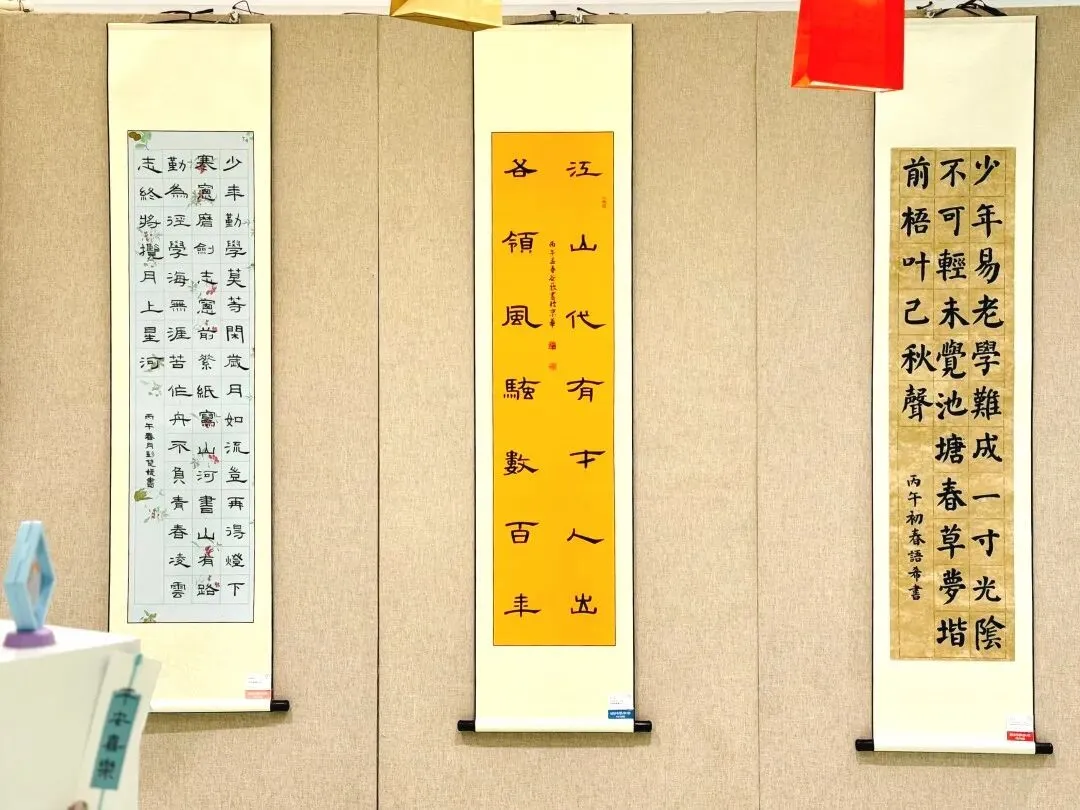 少年勤學莫等閑歲月如流豈再得燈下
寒窻磨劍志窻前縈紙寫山河書山有路
勤為徑學海無涯苦作舟不負青春凌雲
志終將攬月上星河
丙午春月彭書
江山代有才人出
各領風騷數百年
丙午孟春書於京華
少年易老學難成一寸光陰
不可輕未覺池塘春草夢堦
前梧叶己秋聲
丙午初春語希書
平安喜樂